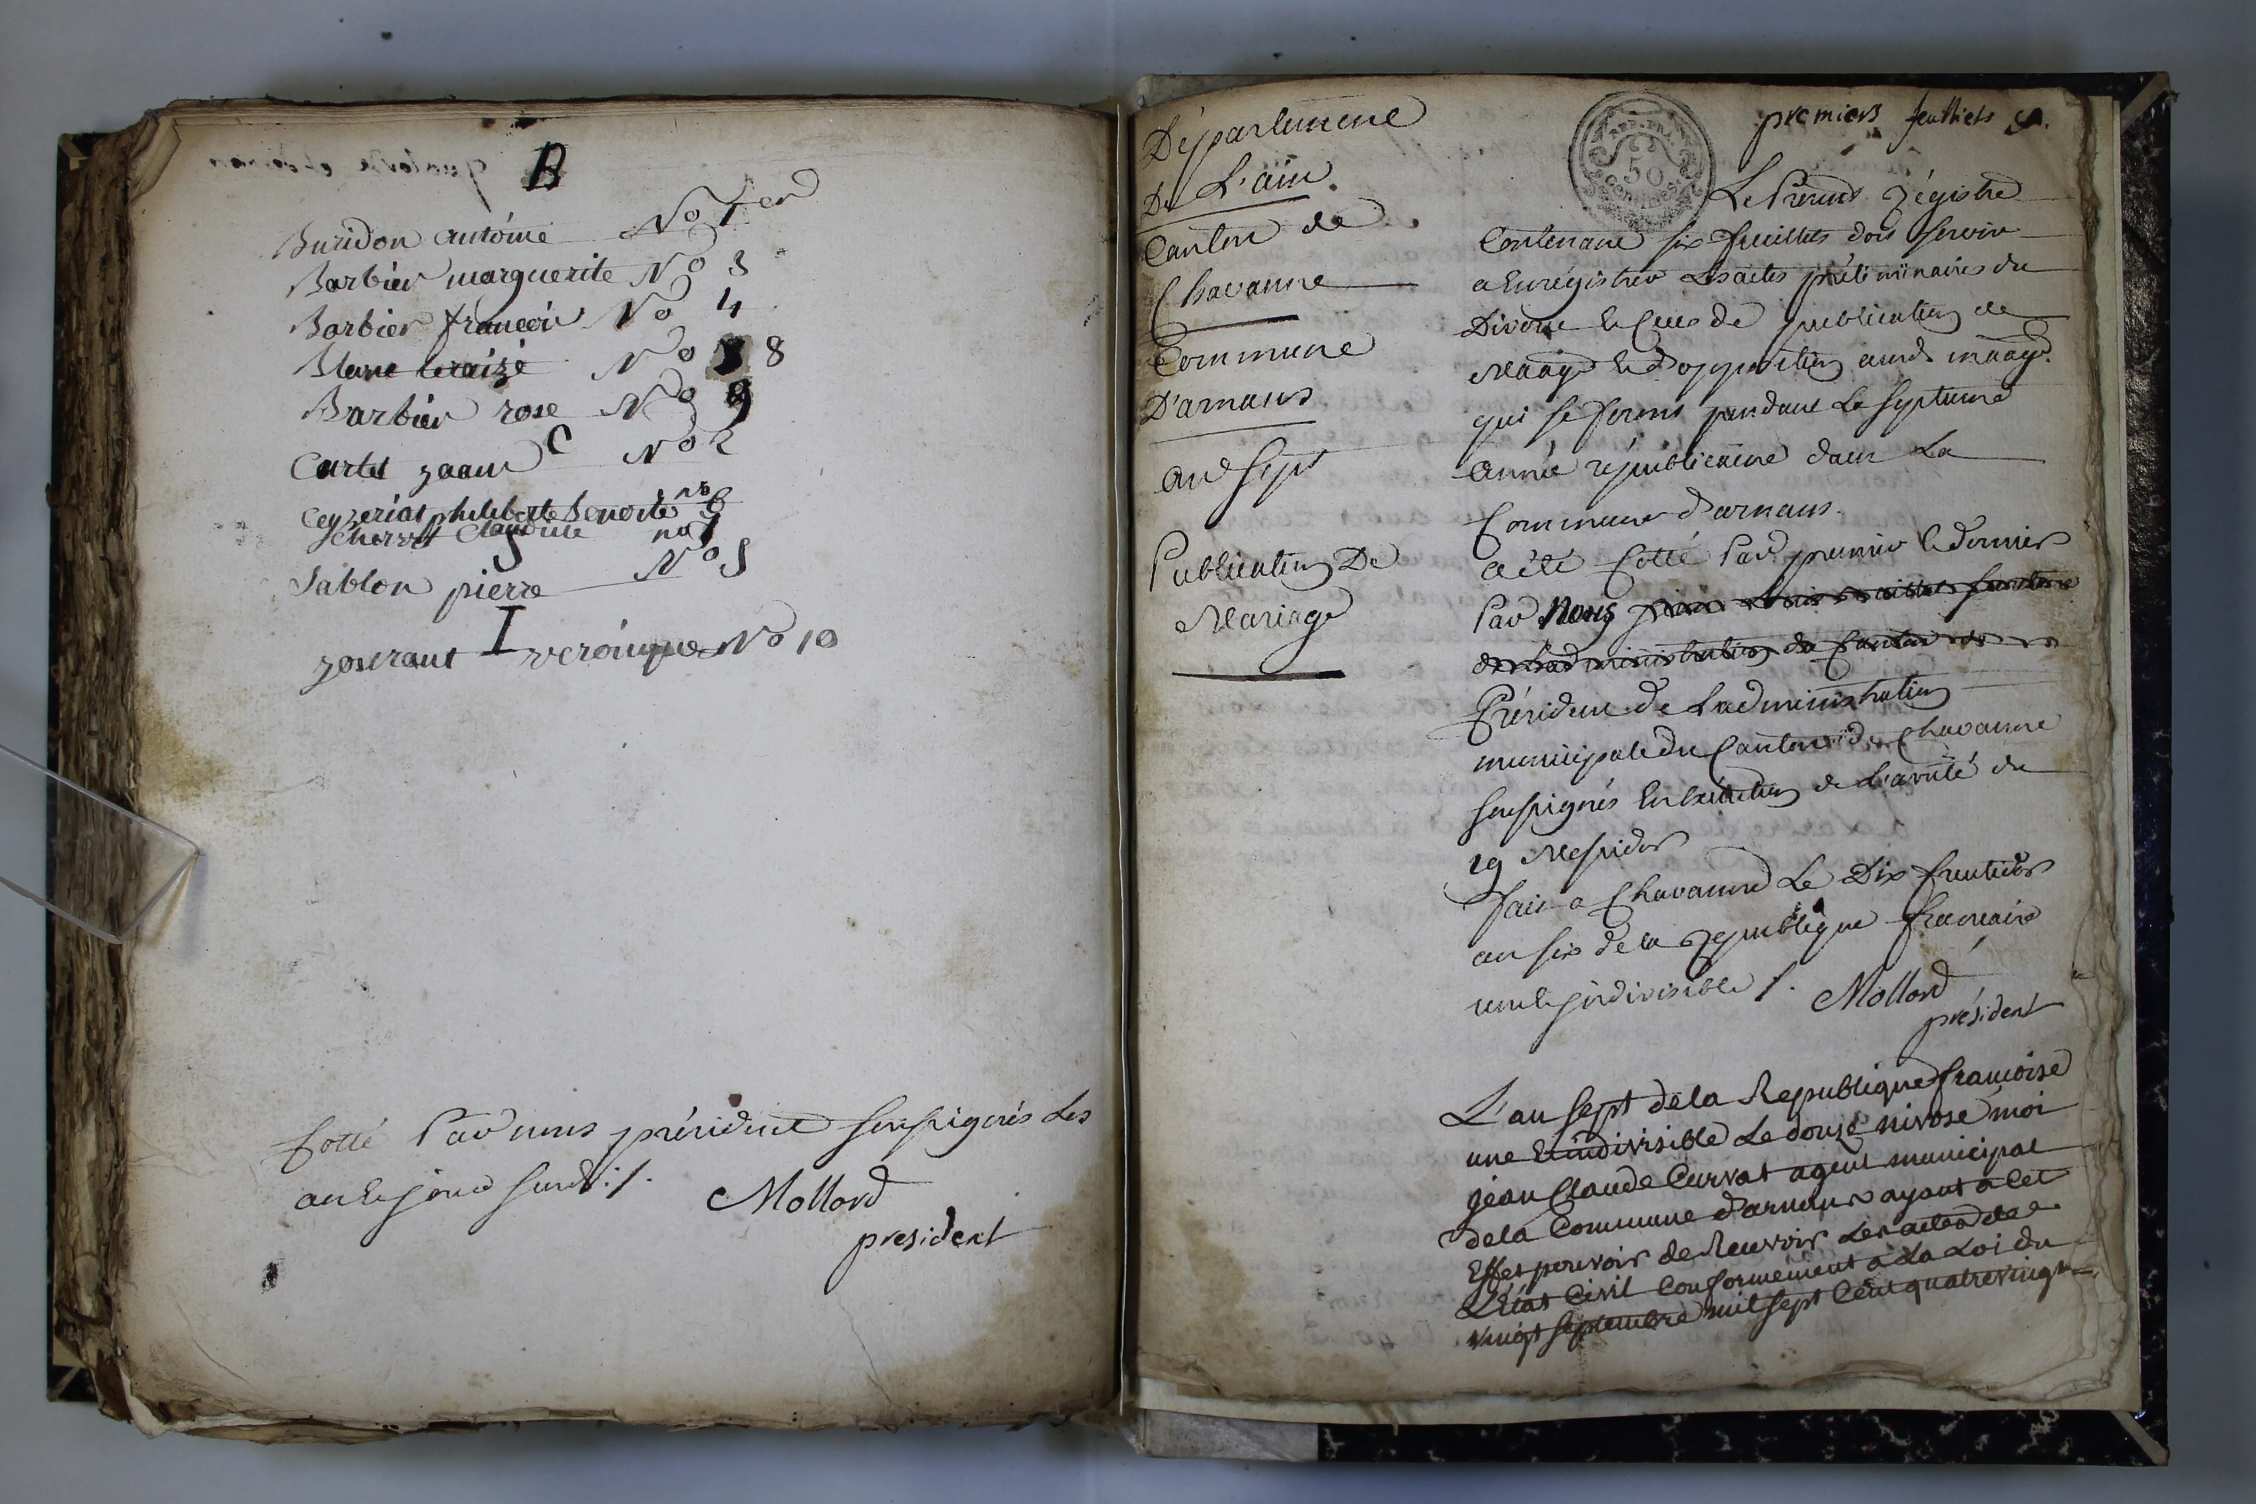 B
Buridon antoine No 1er
Barbier marguerite No 3
Barbier francois No 4
Blanc No 8
Barbier rose No 9
C
Cartet No 2
Ceyzeriat philiberte Benoite no 6
Cherrel Claudine no 7
J
Jablon pierre No 5
I
zouvant veronique No 10
Cotté Par nous président soussignés Les
an & jour susd. /.
Mollard
president
Département
De L'ain
Canton de
Chavanne
Commune
D'arnans
an Sept
Publication De
Mariage
REP. FRA.
50
CENTIMES
premiers feulliets
Le Présent régistre
Contenant six feuillets dois servir
a Enrégistrer Les actes préliminaires du
Divorce & Ceux de publication de
Mariage & D'opposition auxds mariage
qui se feront pendant Le septieme
année républicaine dans La
Commune d'arnans.
a été Cotté Par premier & dernier
Par Nous
de L'administration du Canton
Président de L'administration
municipale du Canton de Chavanne
soussignés En Exécution de L'arrêté du
19 Messidor
fait a Chavanne Le Dix fructidor
an six de la république francaise
une & indivisible /.
Mollard
président
L'an sept de la Republique francoise
une & indivisible Le douze nivose moi
jean Claude Curvat agent municipal
de la Commune d'arnans ayant a Cet
Effet pouvoir de Recevoir Les actes de
L'état Civil Conformement a La Loi du
vingt septembre mil sept Cent quatrevingt